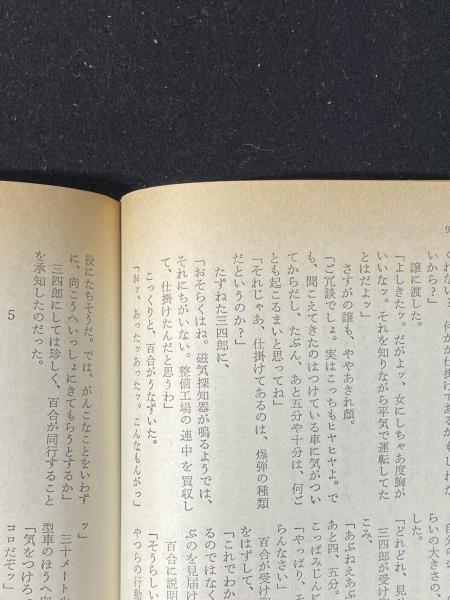 くれない? 何かが仕掛けてあるかもしれな
いから？」
譲に渡した。
「よしきたッ。だがよッ、女にしちゃあ度胸が
いいなッ。それを知りながら平気で運転してた
とはだよッ」
さすがの譲も、ややあきれ顔。
「ご冗談でしょ。実はこっちもヒヤヒヤよ。で
も、聞こえてきたのはつけている車に気がつい
てからだし、たぶん、あと五分や十分は、何ご
とも起こるまいと思ってね」
「それじゃあ、仕掛けてあるのは、爆弾の種類
だというのか？」
たずねた三四郎に、
「おそらくはね。磁気探知器が鳴るようでは、
それにちがいない。整備工場の連中を買収し
て、仕掛けたんだと思うわ」
こっくりと、百合がうなずいた。
「おッ、あったッあったッ。こんなもんがっ」
自分の
らいの大きさの、
した。
「どれどれ、見
三四郎が受け
こみ、
「あぶねえあぶ
あと四、五分。
こっぱみじんに
「やっぱり、そ
らんなさい」
百合が受け
をはずして、
「これでわか
るのではなく
ぶのを見届け
百合に説明
「そうらしい
やつらの行動
役にたちそうだ。では、がんこなことをいわず
に、向こうへいっしょにきてもらうとするか」
三四郎にしては珍しく、百合が同行すること
を承知したのだった。
5
ッ」
三十メートル
型車のほうへ向
「気をつけろ
コロだぞッ」